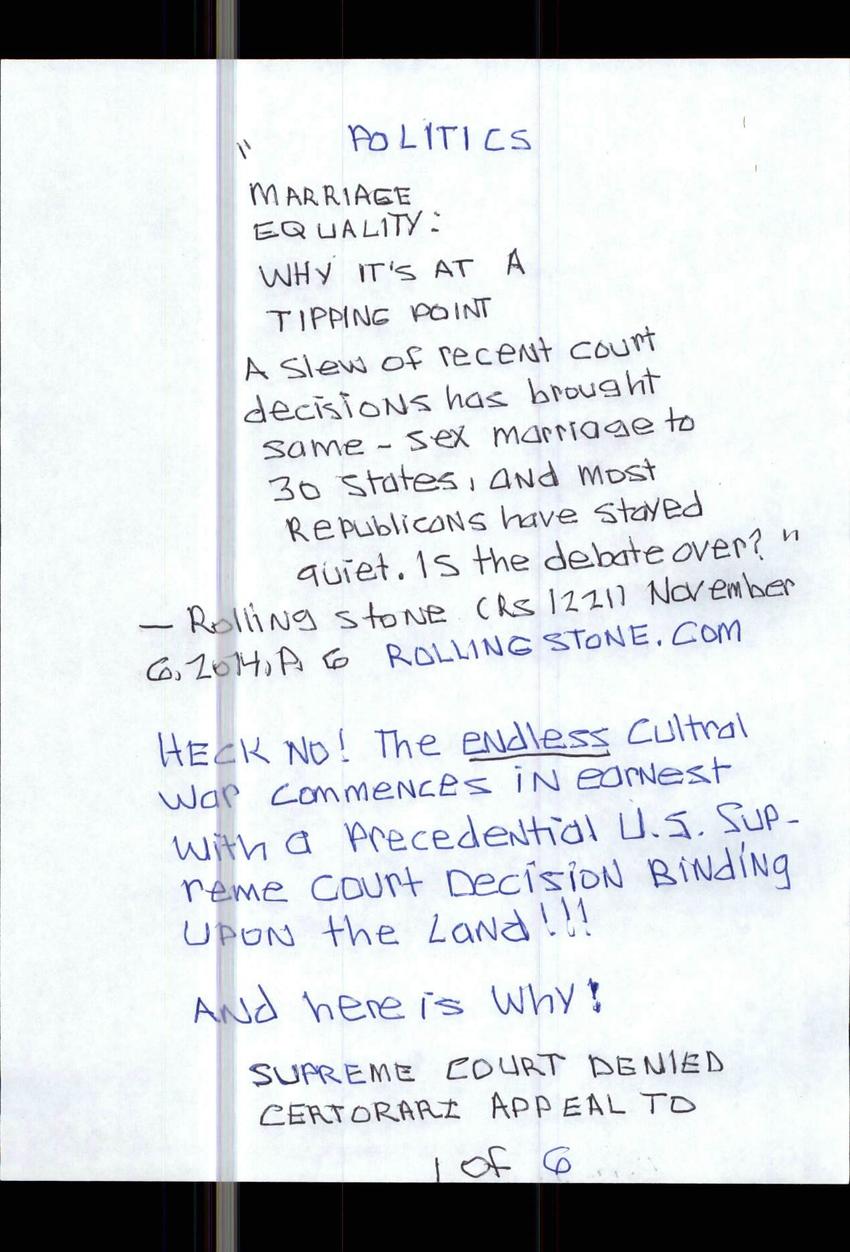 " POLITICS
MARRIAGE
EQUALITY:
WHY IT'S AT A
TIPPING POINT
A slew of recent court
decisions has brought
same-sex marriage to
30 states, and most
Republicans have stayed
quiet. Is the debate over? "
— Rolling Stone (RS 1221) November
6, 2014, P 6 ROLLINGSTONE.COM
HECK NO! The endless Cultral
War commences in earnest
with a Precedential U.S. Sup-
reme Court Decision Binding
UPON the Land!!!
And here is Why!
SUPREME COURT DENIED
CERTORARI APPEAL TO
1 of 6